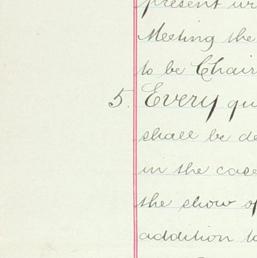 present
Meeting the
to be Chair
5. Every qu
shall be de
in the case
the show of
addition to